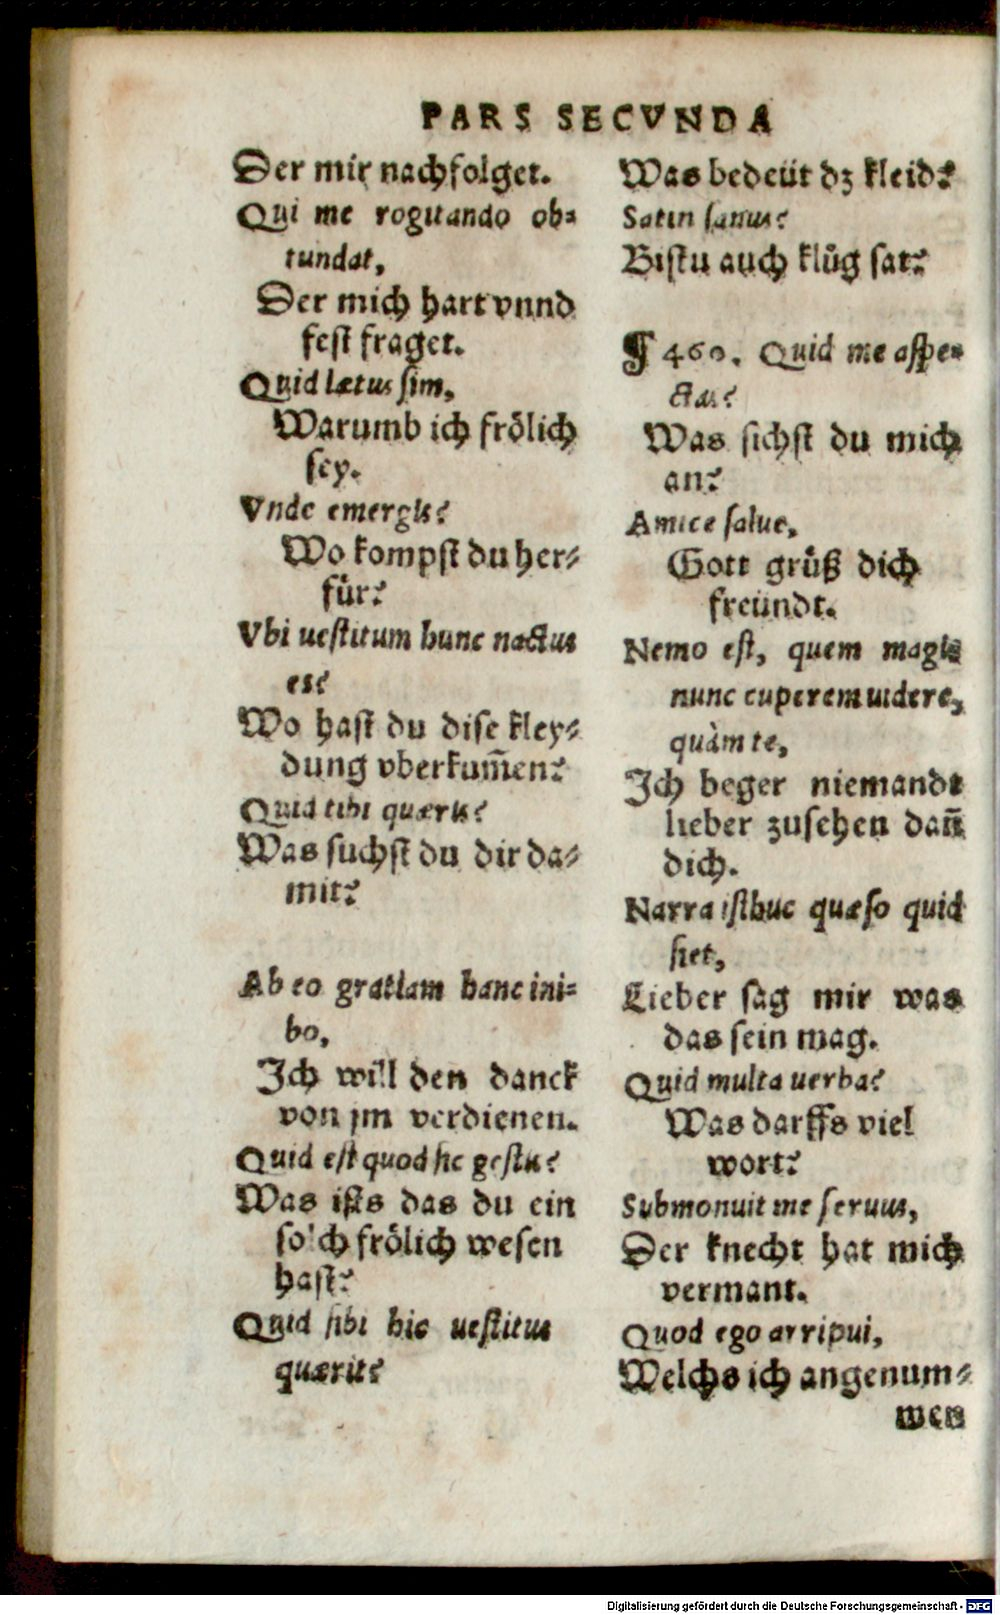 PARS SECVNDA
Der mir nachfolget.
Qui me rogitando ob=
tundat,
Der mich hart vnnd
fest fraget.
Quid lætus sim,
Warumb ich frölich
sey.
Vnde emergis?
Wo kompst du her=
für?
Vbi uestitum hunc nactus
es?
Wo hast du dise kley=
dung vberkum̄en?
Quid tibi quæris?
Was suchst du dir da=
mit?
Ab eo gratiam hanc ini=
bo,
Ich will den danck
von jm verdienen.
Quid est quod sic gestis?
Was ists das du ein
solch frölich wesen
hast?
Quid sibi hic uestitus
quærit?
Was bedeüt dz kleid?
Satin sanus?
Bistu auch klůg sat?
¶ 460. Quid me aspe=
ctas?
Was sichst du mich
an?
Amice salue,
Gott grüß dich
freündt.
Nemo est, quem magis
nunc cuperem uidere,
quàm te,
Ich beger niemandt
lieber zusehen dañ
dich.
Narra isthuc quæso quid
siet,
Lieber sag mir was
das sein mag.
Quid multa uerba?
Was darffs viel
wort?
Submonuit me seruus,
Der knecht hat mich
vermant.
Quod ego arripui,
Welchs ich angenum=
men
Digitalisierung gefördert durch die Deutsche Forschungsgemeinschaft - DFG